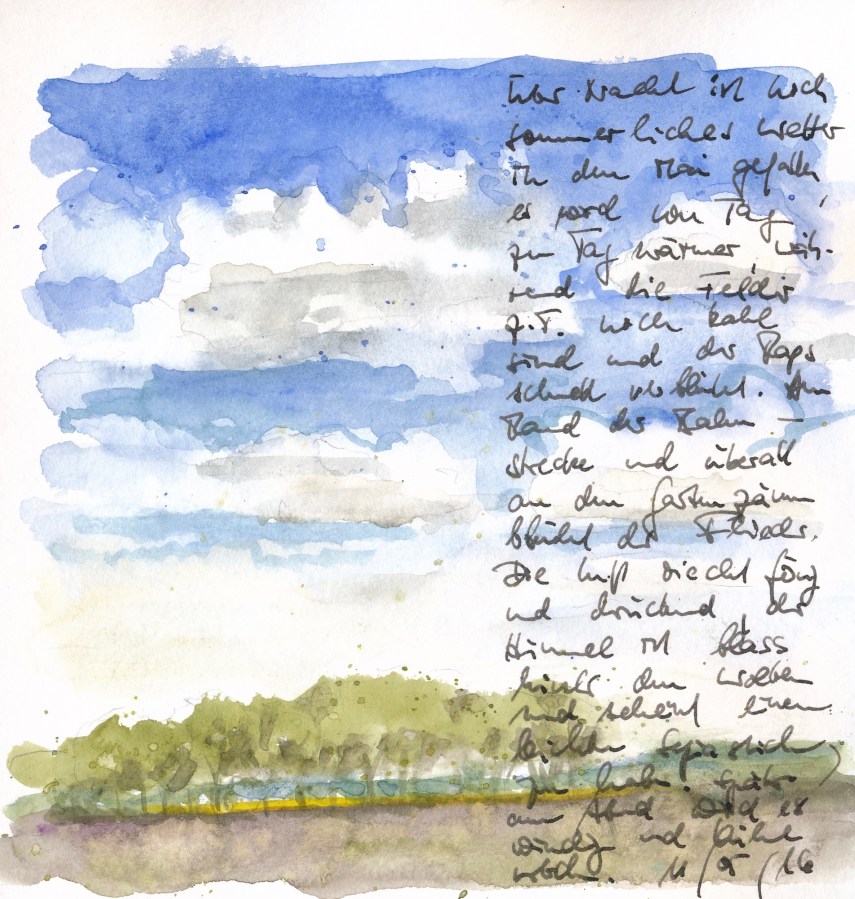 Über Nacht ist noch
sommerliches Wetter
in den Mai gefallen,
es wird von Tag
zu Tag wärmer, wäh-
rend die Felder
z.T. noch kahl
sind und der Raps
schnell verblüht. Am
Rand der Bahn-
strecke und überall
an den Gartenzäunen
blüht der Flieder.
Die Luft riecht
und drückend, der
Himmel ist blass
hinter den Wolken
und scheint einen
leichten
zu haben. Spät
am Abend wird es
windig und kühl
11/5/16